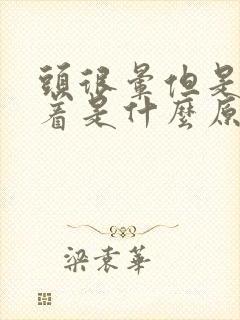 頭很暈但是
着是什麼原
梁袁華